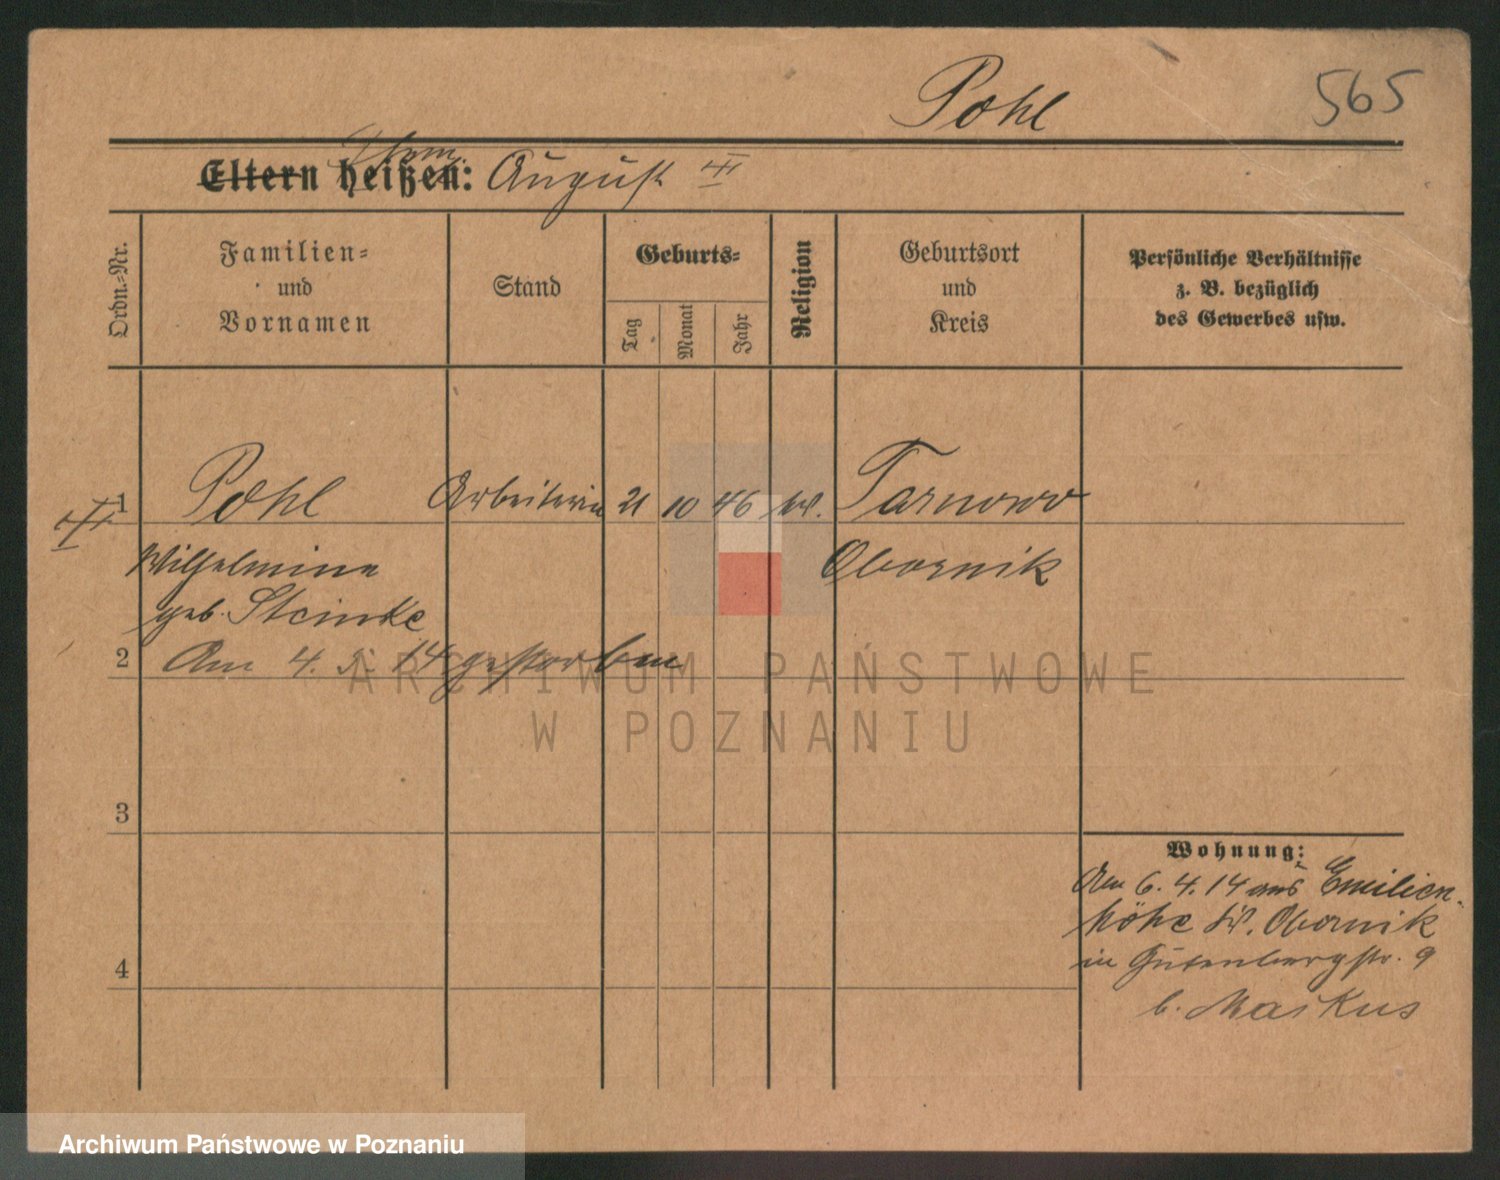 Pohl
565
Eltern heißen: August
Ordn.-Nr.
Familien-
und
Vornamen
Stand
Geburts-
Tag
Monat
Jahr
Religion
Geburtsort
und
Kreis
Persönliche Verhältnisse
z. B. bezüglich
des Gewerbes usw.
1
Pohl
Arbeiterin
21
10
46
Tarnowo
Wilhelmine
Obornik
geb. Steinke
2
Am 4. 5. 14 gestorben
ARCHIWUM PAŃSTWOWE
W POZNANIU
3
Wohnung:
Am 6. 4. 14 aus Emilien-
höhe Obornik
4
in Gutenbergstr. 9
b. Markus
Archiwum Państwowe w Poznaniu